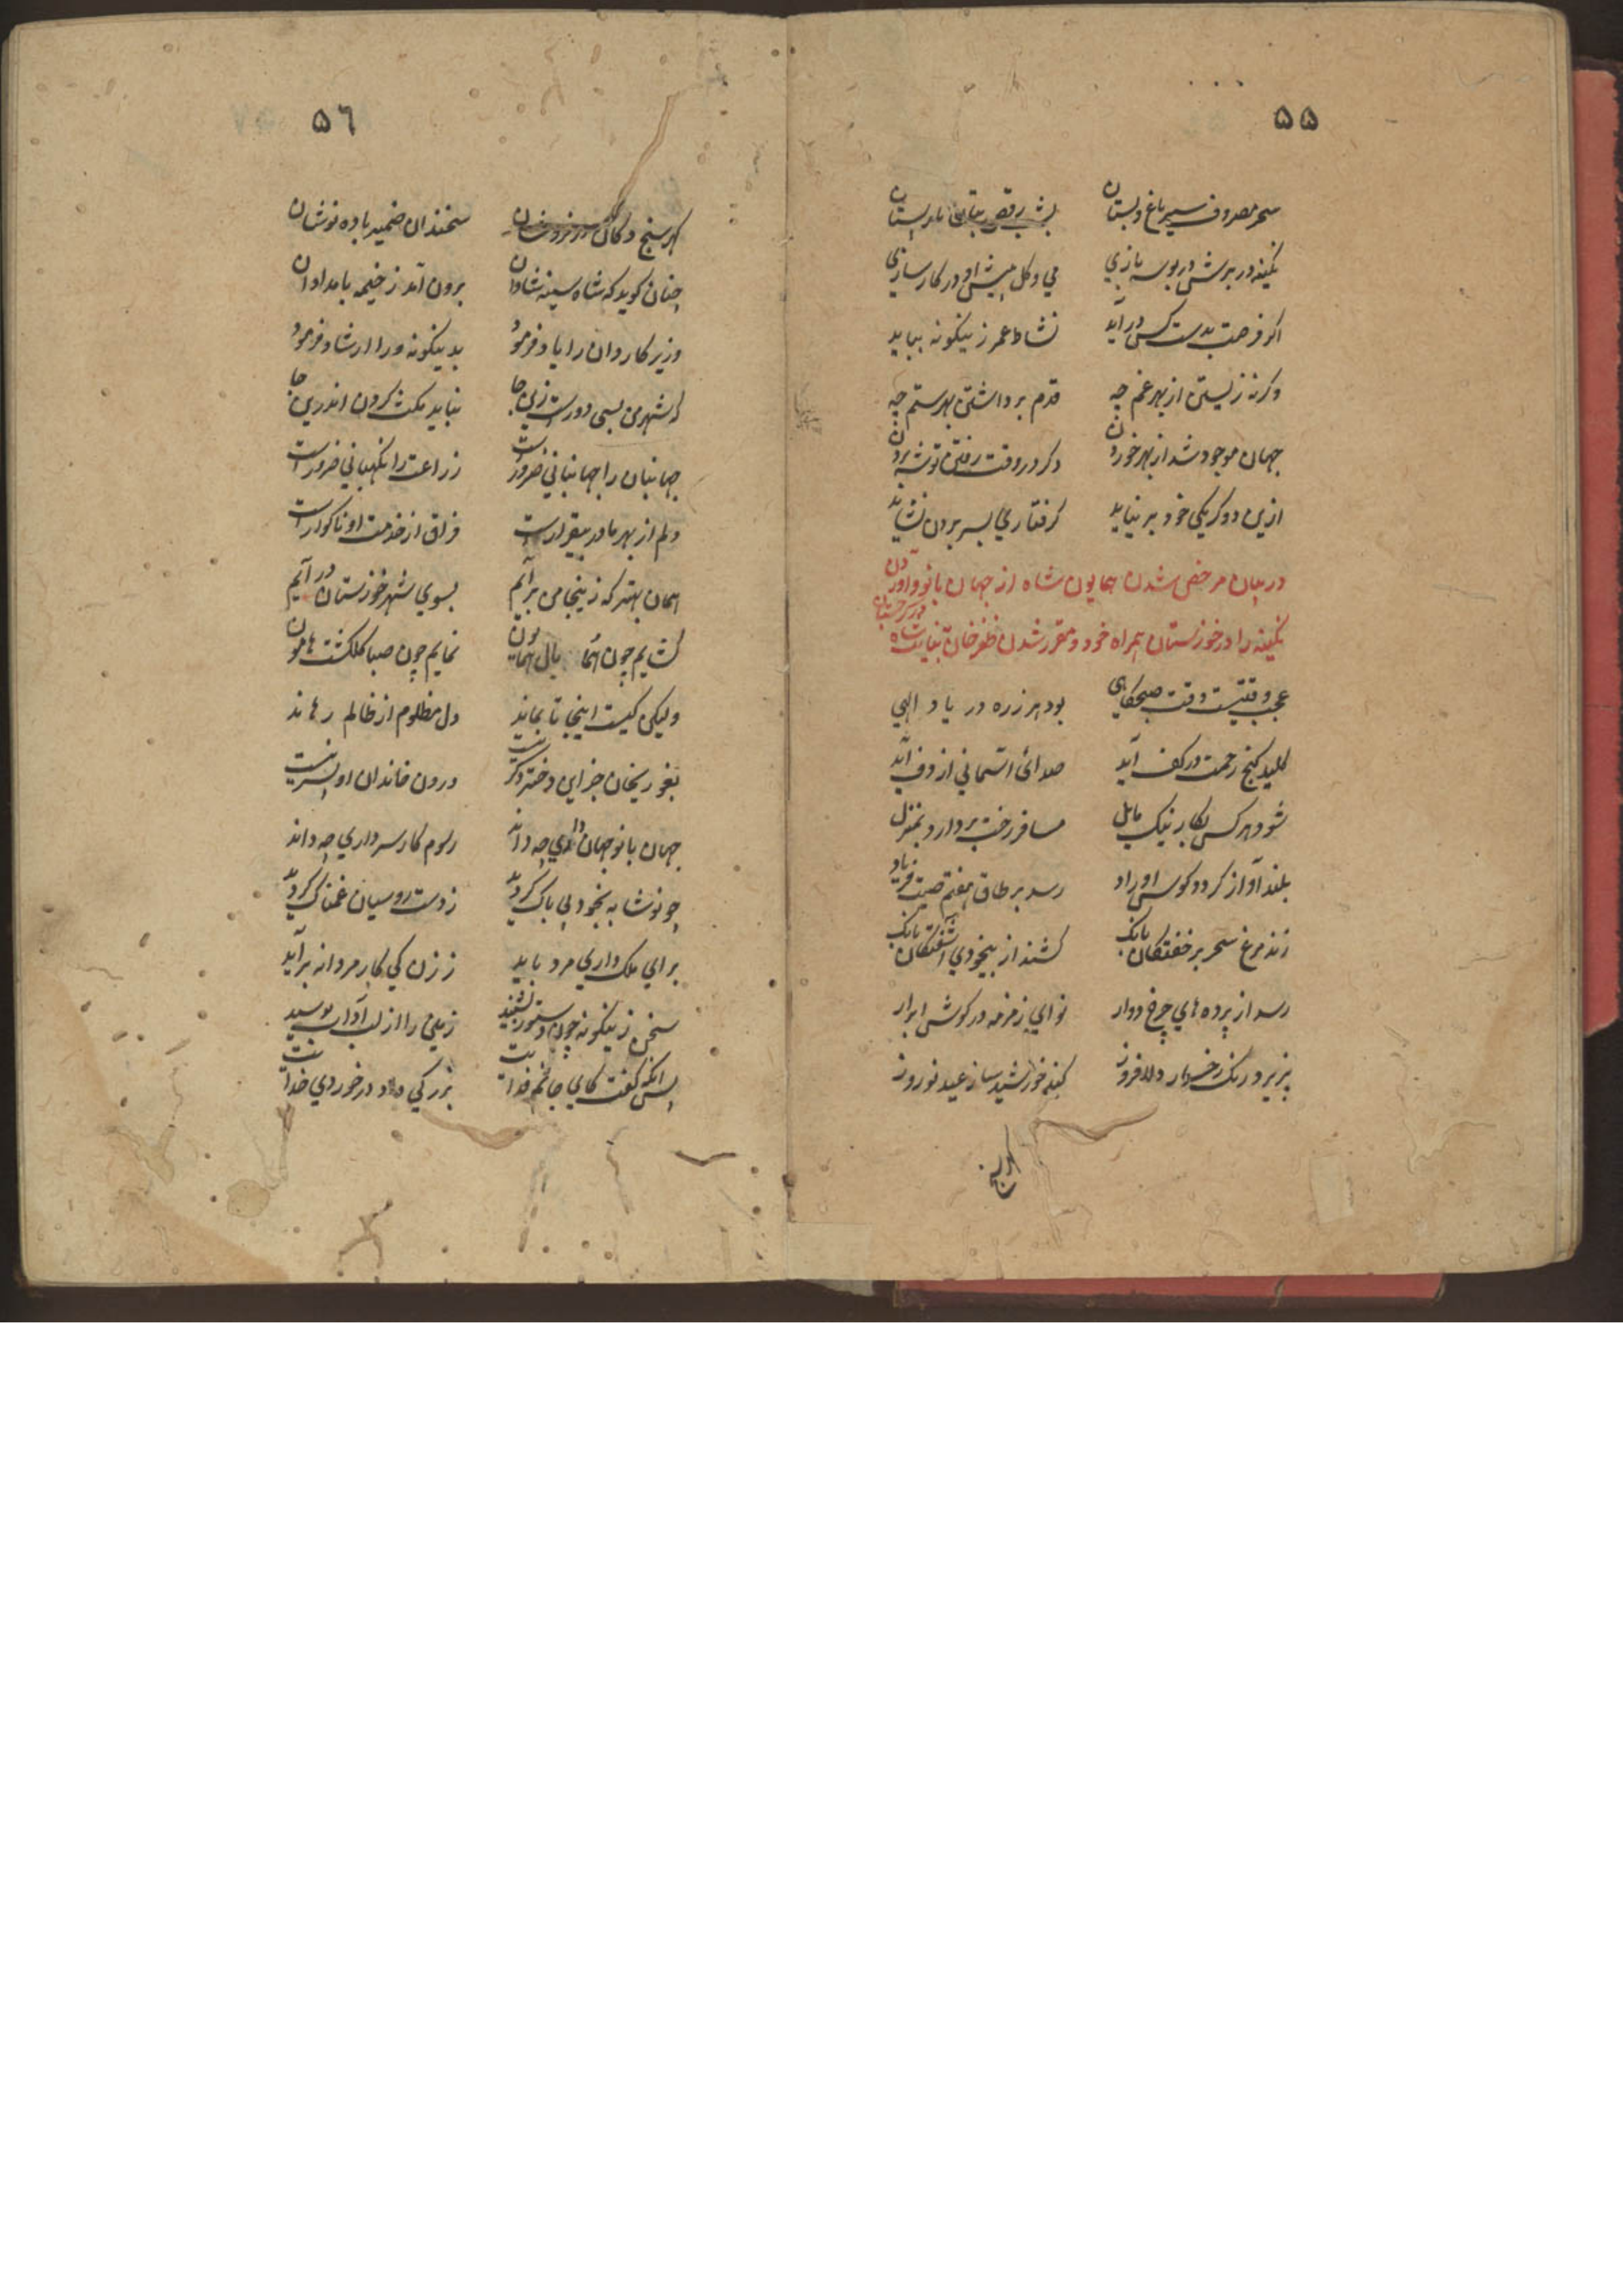 ۵۵
سحر مصروف سیر باغ و بستان بشب رقص بتان
نگینه در برش در بوسه بازی می و گل پیش او در کار سازی
اگر فرصت بدست کس در آید نشاط عمر زینگونه بباید
وگرنه زیستن از بهر غم چه قدم برداشتن بهر ستم چه
جهان موجود شد از بهر خوردن دگر در وقت رفتن توشه بردن
ازین دو گر یکی خود بر نیاید گرفتاری بسر بردن نشاید
در بیان مرخص شدن همایون شاه از جهان بانو و آوردن
نگینه را در خوزستان همراه خود و مقرر شدن ظفرخان بنیابت شاه در سرحستان
عجب وقتیست وقت صبحگاهی بود هر زره در یاد الهی
کلید گنج رحمت در کف آید صدائ آسمانی از دف آید
شود هر کس بکار نیک مایل مسافر رخت بردارد بمنزل
بلند آواز گردد کوس اوراد رسد بر طاق هفتم صیت فریاد
زند مرغ سحر بر خفتگان بانگ کشند از بیخودی آشفتگان بانگ
رسد از پرده های چرخ دوار نوای زمزمه در گوش ابرار
پزیرد رنگ رخسار دلافروز کند خورشید ساز عید نوروز
۵٦
گهرسنج دکان سخندان ضمیر باده نوشان
چنان گوید که شاه سینه شادان برون آمد ز خیمه بامدادان
وزیر کاردان را یاد فرمود بدینگونه ورا ارشاد فرمود
که شهر من بسی دورست زین جا نباید مکث کردن اندرین جا
جهانبان را جهانبانی ضرورست زراعت را نگهبانی ضرورست
دلم از بهر مادر بیقرارست فراق از خدمت او ناگوارست
همان بهتر که زینجا من برآیم بسوی شهر خوزستان در آیم
گشایم چون هما بال همایون نمایم چون صبا گلگشت هامون
ولیکن کیست اینجا تا بماند دل مظلوم از ظالم رهاند
بغوریخان جز این دختر دگر نیست درون خاندان او پسر نیست
جهان بانو جهان داری چه داند رسوم کار سرداری چه داند
چو نوشابه بخود بی باک گردید ز دست روسیان غمناک گردید
برای ملک داری مرد باید ز زن کی کار مردانه برآید
سخن زینگونه چون دستور بشنید زمین را از لب آداب بوسید
پس آنگه گفت کای جانم فدایت بزرگی داد در خوردی خدایت